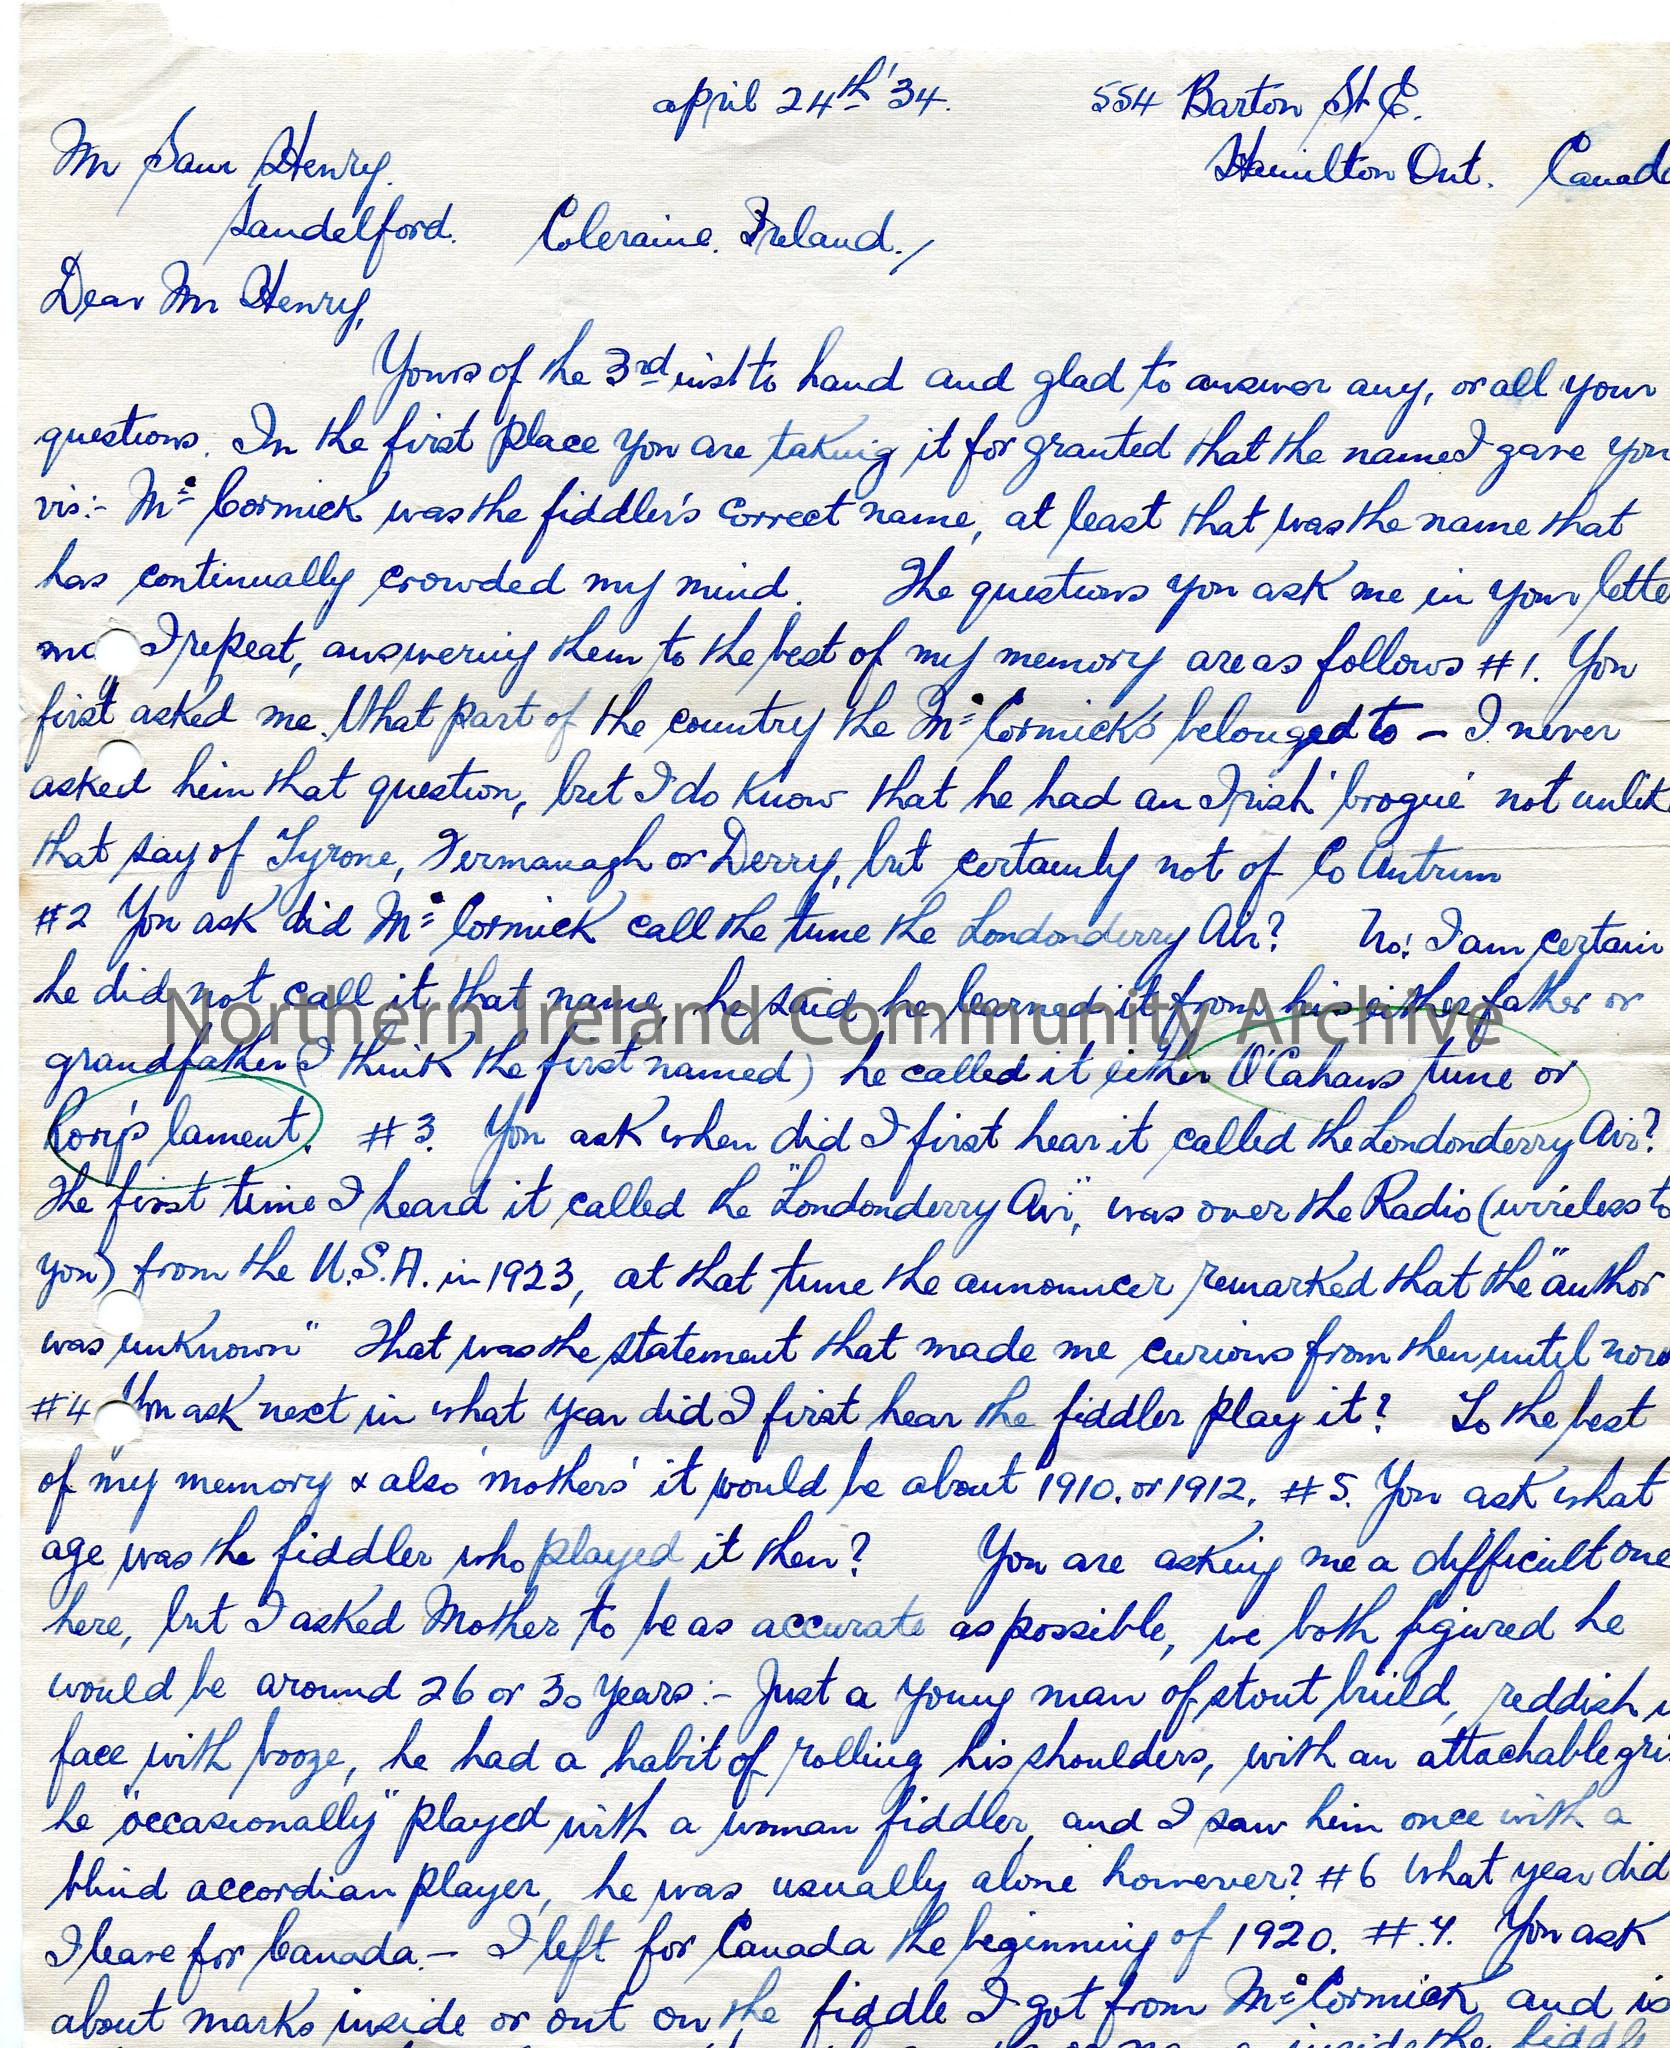 april 24th '34. 554 Barton St E.
Mr Sam Henry. Hamilton Ont. Canada
Sandelford. Coleraine. Ireland.,
Dear Mr Henry,
Yours of the 3rd inst to hand and glad to answer any, or all your
questions. In the first place you are taking it for granted that the name I gave you
vis:- Mc Cormick was the fiddler's correct name, at least that was the name that
has continually crowded my mind. The questions you ask me in your lette
I repeat, answering them to the best of my memory are as follows #1. You
first asked me. What part of the country the Mc Cormick's belonged to – I never
asked him that question, but I do know that he had an Irish 'brogue' not unlike
that say of Tyrone, Fermanagh or Derry, but certainly not of Co Antrim
#2 You ask did Mc Cormick call the tune the Londonderry Air? No! I am certain
he did not call it that name, he said he learned it from his either father or
Northern Ireland Community Archive
grandfather (I think the first named) he called it either O'Cahans tune or
Rory's lament. #3. You ask when did I first hear it called the Londonderry Air?
The first time I heard it called the "Londonderry Air", was over the Radio (wireless to
you) from the U.S.A. in 1923, at that time the announcer remarked that the "author
was unknown" That was the statement that made me curious from then until now
#4 You ask next in what year did I first hear the fiddler play it? To the best
of my memory & also 'mothers' it would be about 1910. or 1912. #5. You ask what
age was the fiddler who played it then? You are asking me a difficult one
here, but I asked Mother to be as accurate as possible, we both figured he
would be around 26 or 30 years:- Just a young man of stout build, reddish
face with booze, he had a habit of rolling his shoulders, with an attachable gri
he "occasionally" played with a woman fiddler, and I saw him once with a
blind accordian player, he was usually alone however? #6 What year did
I leave for Canada. – I left for Canada the beginning of 1920. #.7. You ask
about marks inside or out on the fiddle I got from Mc Cormick, and is
inside the fiddle